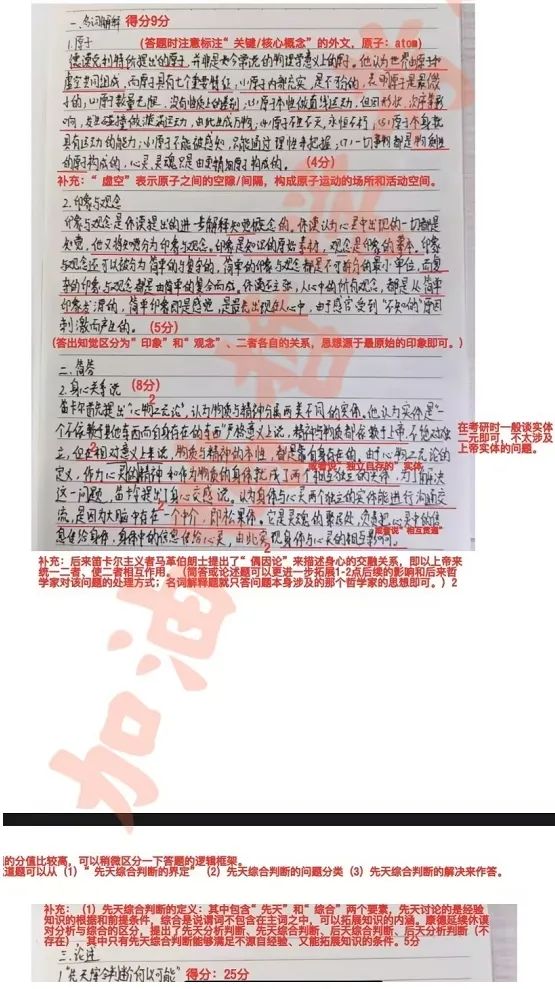 一、名词解释 得分9分
1.原子 (答题时注意标注“关键/核心概念”的外文，原子：atom)
德谟克利特所提出的原子，并非是如今常说的物理学意义上的原子。他认为世界由原子和
虚空共同组成，而原子具有七个重要特征，(1)原子内部充实，是不可分的，表明原子是最微
小的，(2)原子数量无限，没有性质上的差别，(3)原子本性做直线运动，但因形状、次序等影
响，互相碰撞做漩涡运动，由此生成万物；(4)原子不生不灭，永恒不朽；(5)原子自身就
具有运动的能力，(6)原子不能被感知，只能通过理性来把握；(7)一切事物都是物质性
的原子构成的，心灵、灵魂它是由更精细原子构成的。 (4分)
补充：“虚空”表示原子之间的空隙/间隔，构成原子运动的场所和活动空间。
2.印象与观念
印象与观念是休谟提出的进一步解释知觉概念的。休谟认为心灵中出现的一切都是
知觉，他又将知觉分为印象与观念。印象是知识的原始素材，观念是印象的摹本。印象
与观念还可以被分为简单的与复杂的，简单的印象与观念都是不可拆分的最小单位，而复
杂的印象与观念都是由简单的复合而成。休谟还主张，人心中的所有观念，都是从简单
印象发源的，简单印象即是感觉，是最先出现在人心中，由于感官受到“不知的”原因
刺激而产生的。 (5分)
(答出知觉区分为“印象”和“观念”、二者各自的关系，思想源于最原始的印象即可。)
二、简答
2.身心关系说 (8分)
2
笛卡尔首先提出“心物二元论”，认为物质与精神分属两类不同的实体。他认为实体是“一
个不依赖于其他东西而自身存在的东西”严格意义上说，精神与物质都依赖于上帝，不能绝对独
在考研时一般谈实体
二元即可，不太涉及
上帝实体的问题。
2
立，但在相对意义上来说，物质与精神的本性，都是靠自身存在的。由于心物二元论的
或者说，独立自存的“实体
定义，作为心灵的精神和作为物质的身体就成了两个相互独立的实体，为了解决
这一问题，笛卡尔提出了身心交感说。认为身体与心灵两个独立的实体能进行沟通交
2
流，是因为大脑中存在一个中介，即松果体。它是灵魂的聚居处，负责把心灵中的信
或者说“相互贯通”
息传给身体，身体中的信息传给心灵，由此实现身体与心灵的相互影响。
2
补充：后来笛卡尔主义者马革伯朗士提出了“偶因论”来描述身心的交融关系，即以上帝来
统一二者、使二者相互作用。（简答或论述题可以更进一步拓展1-2点后续的影响和后来哲
学家对该问题的处理方式；名词解释题就只答问题本身涉及的那个哲学家的思想即可。）2
加油
的分值比较高，可以稍微区分一下答题的逻辑框架。
道题可以从（1）“先天综合判断的界定”（2）先天综合判断的问题分类（3）先天综合判断的解决来作答。
补充：（1）先天综合判断的定义：其中包含“先天”和“综合”两个要素，先天讨论的是经验
知识的根据和前提条件，综合是说谓词不包含在主词之中，可以拓展知识的内涵。康德延续休谟
对分析与综合的区分，提出了先天分析判断、先天综合判断、后天综合判断、后天分析判断（不
存在），其中只有先天综合判断能够满足不源自经验、又能拓展知识的条件。5分
三、论述
1.“先天综合判断何以可能” 得分：25分